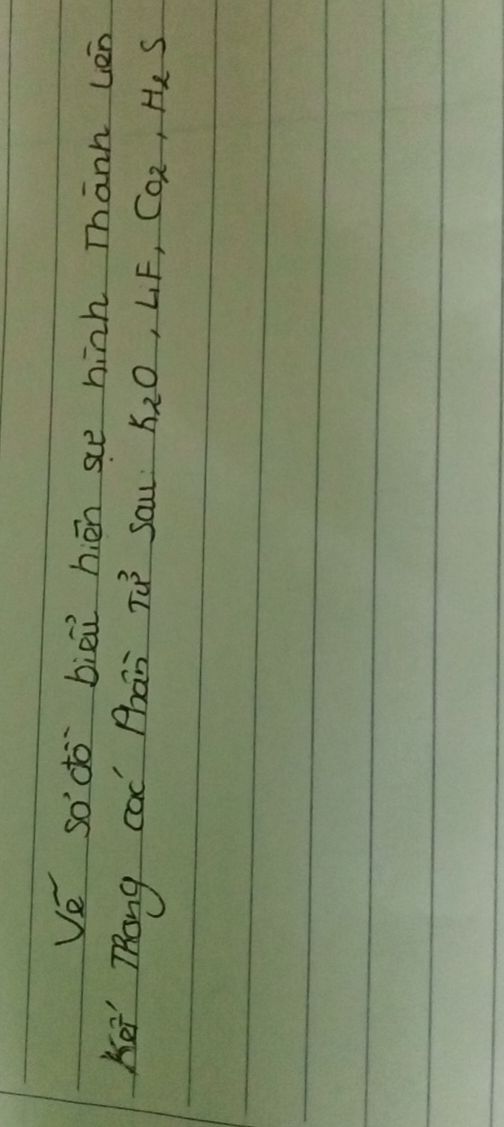 Vẽ sơ đồ biểu hiện sự hình Thành Liên
Kết Trong các Phân Tử Sau: K₂O, LiF, CO₂, H₂S